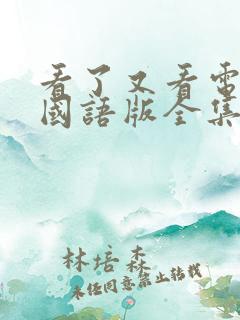 看了又看電
國語版全集
林培森
未經同意禁止轉載